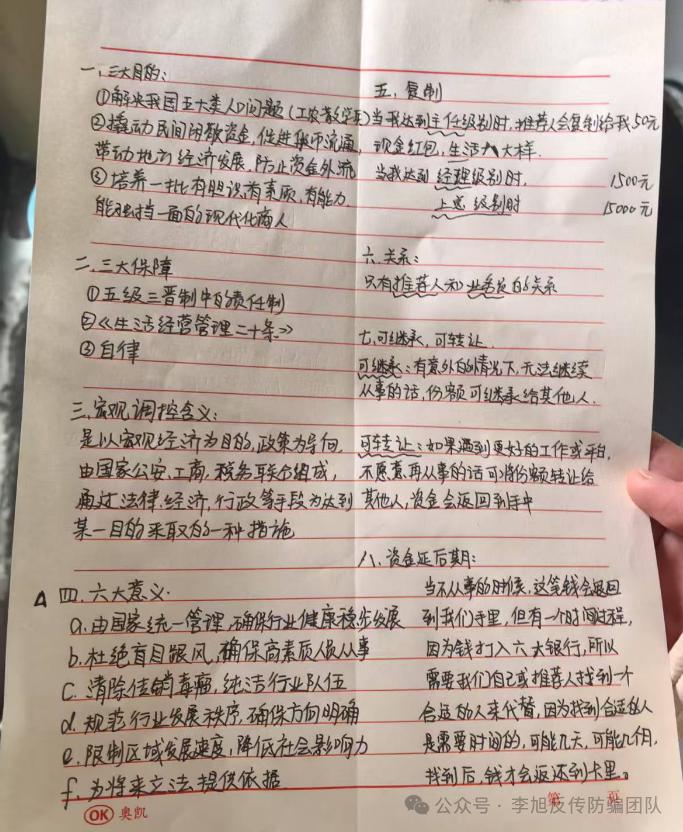 一、三大目的：
①解决我国五大类人口问题（工农兵教学军）
②撬动民间闲散资金，促进货币流通，
带动地方经济发展，防止资金外流
③培养一批有胆识有素质，有能力
能独挡一面的现代化商人
二、三大保障
①五级三晋制中的责任制
②《生活经营管理二十条》
③自律
三、宏观调控含义：
是以宏观经济为目的，政策为导向，
由国家公安、工商，税务联合组成，
通过法律、经济，行政等手段为达到
某一目的采取的一种措施
四、六大意义：
a.由国家统一管理，确保行业健康稳步发展
b.杜绝盲目跟风，确保高素质人员从事
c.清除传销毒瘤，纯洁行业队伍
d.规范行业发展秩序，确保方向明确
e.限制区域发展速度，降低社会影响力
f.为将来立法提供依据
五、复制
当我达到主任级别时，推荐人会复制给我50元
现金红包，生活八大样.
当我达到经理级别时， 1500元
上总级别时 15000元
六、关系：
只有推荐人和业务员的关系
七.可继承，可转让.
可继承：有意外的情况下，无法继续
从事的话，份额可继承给其他人.
可转让：如果遇到更好的工作或平台，
不愿意再从事的话可将份额转让给
其他人，资金会返回到手中
八、资金延后期：
当不从事的时候，这笔钱会返回
到我们手里，但有一个时间过程，
因为钱打入六大银行，所以
需要我们自己或推荐人找到一个
合适的人来代替，因为找到合适的人
是需要时间的，可能几天，可能几个月，
找到后，钱才会返还到卡里。
OK 奥凯
第 页
公众号 · 李旭反传防骗团队